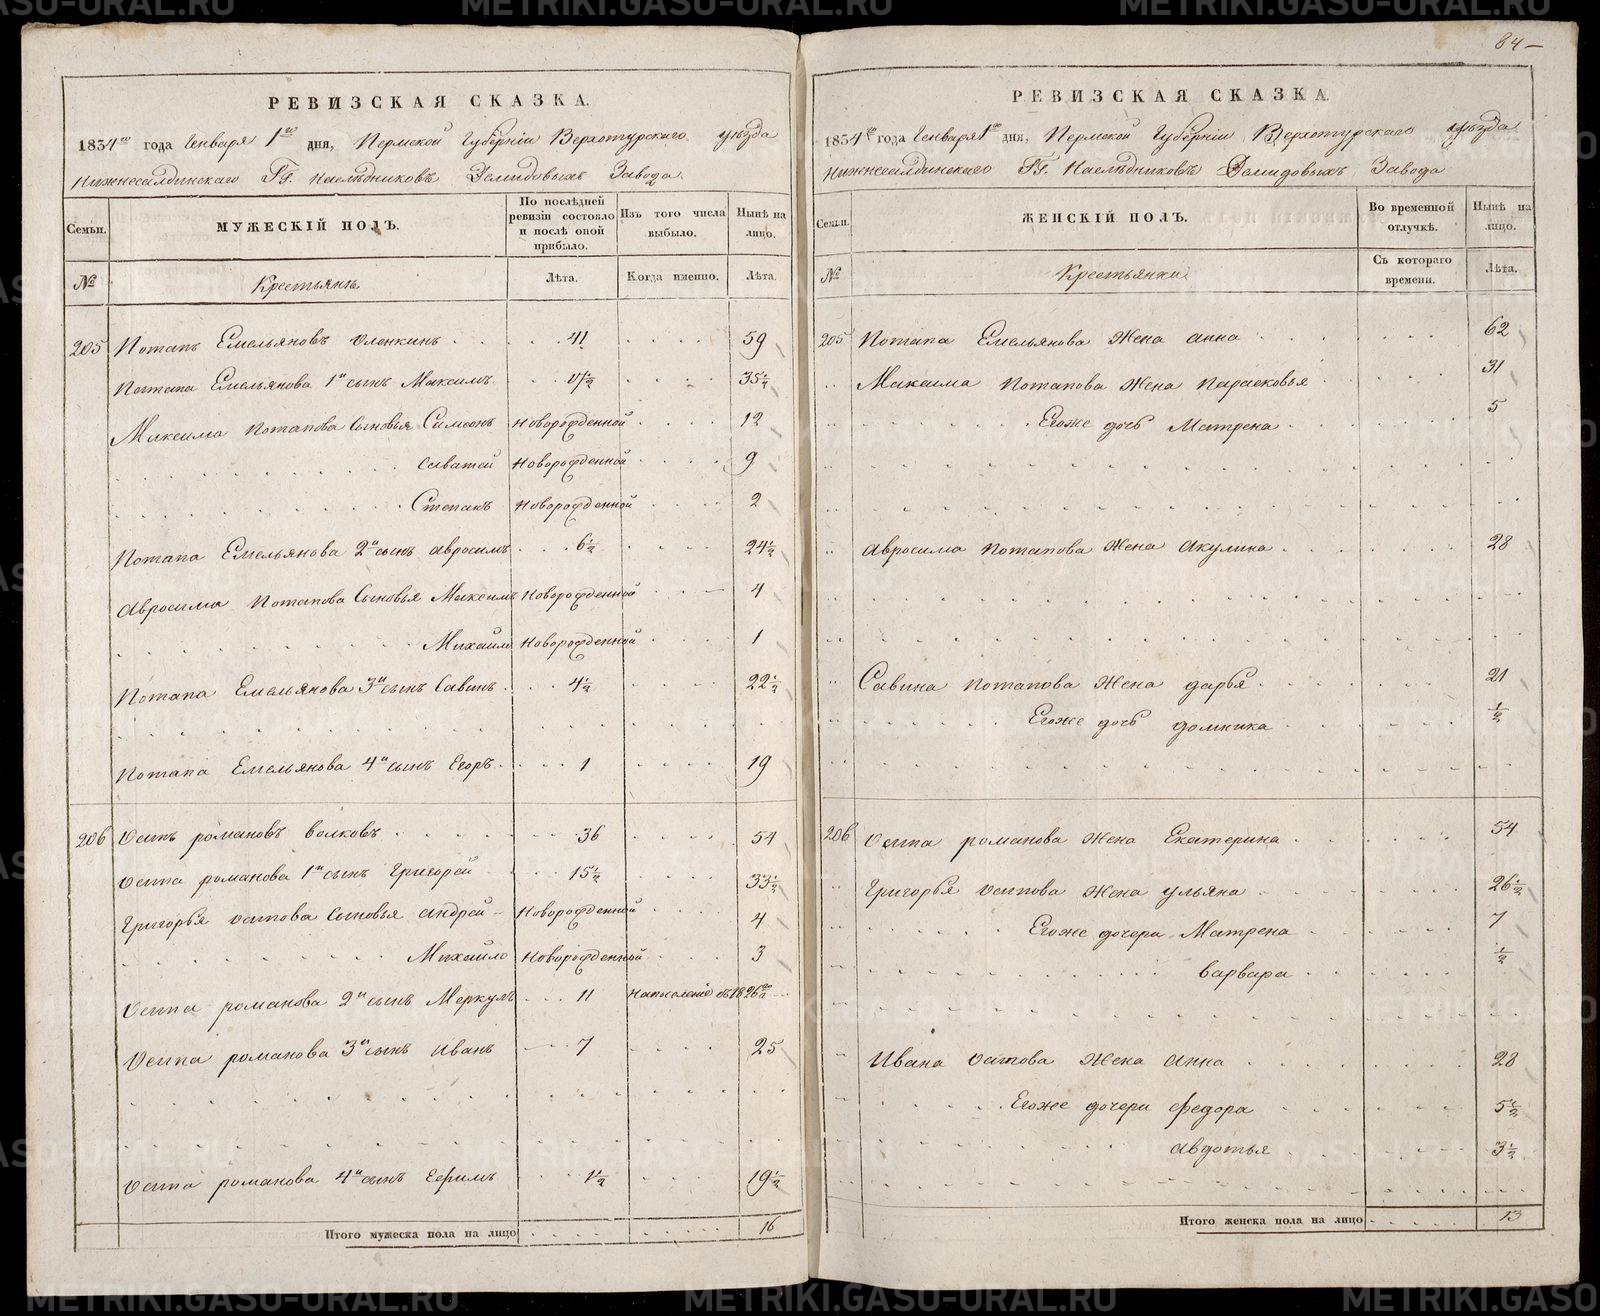 84
РЕВИЗСКАЯ СКАЗКА.
1834го года Генваря 1го дня, Пермской Губерніи Верхотурскаго уѣзда
Нижнесалдинскаго Гг. Наслѣдниковъ Демидовыхъ Завода
Семьи. МУЖЕСКІЙ ПОЛЪ. По послѣдней ревизіи состояло и послѣ оной прибыло. Изъ того числа выбыло. Нынѣ на лицо.
№ Крестьянъ Лѣта. Когда именно. Лѣта.
205 Потапъ Емельяновъ 41 59
Потапа Емельянова 1й сынъ Максимъ 17½ 35½
Максима Потапова Сыновья Симеонъ Новорожденной 12
Саватей Новорожденной 9
Степанъ Новорожденной 2
Потапа Емельянова 2й сынъ Авросимъ 6½ 24½
Авросима Потапова Сыновья Максимъ Новорожденной 4
Михайло Новорожденной 1
Потапа Емельянова 3й сынъ Савинъ 4½ 22½
Потапа Емельянова 4й сынъ Егоръ 1 19
206 Осипъ Романовъ Волковъ 36 54
Осипа Романова 1й сынъ Григорей 15½ 33½
Григорья Осипова Сыновья Андрей Новорожденной 4
Михайло Новорожденной 3
Осипа Романова 2й сынъ Меркулъ 11 въ 1826го
Осипа Романова 3й сынъ Иванъ 7 25
Осипа Романова 4й сынъ Ефимъ 1½ 19½
Итого мужеска пола на лицо 16
РЕВИЗСКАЯ СКАЗКА.
1834го года Генваря 1го дня, Пермской Губерніи Верхотурскаго уѣзда
Нижнесалдинскаго Гг. Наслѣдниковъ Демидовыхъ Завода
Семьи. ЖЕНСКІЙ ПОЛЪ. Во временной отлучкѣ. Нынѣ на лицо.
№ Крестьянки Съ котораго времени. Лѣта.
205 Потапа Емельянова Жена Анна 62
Максима Потапова Жена Парасковья 31
Егоже дочь Матрена 5
Авросима Потапова Жена Акулина 28
Савина Потапова Жена Дарья 21
Егоже дочь Домника ½
206 Осипа Романова Жена Екатерина 54
Григорья Осипова Жена Ульяна 26½
Егоже дочери Матрена 7
Варвара ½
Ивана Осипова Жена Анна 28
Егоже дочери Федора 5½
Авдотья 3½
Итого женска пола на лицо 13
METRIKI.GASO-URAL.RU